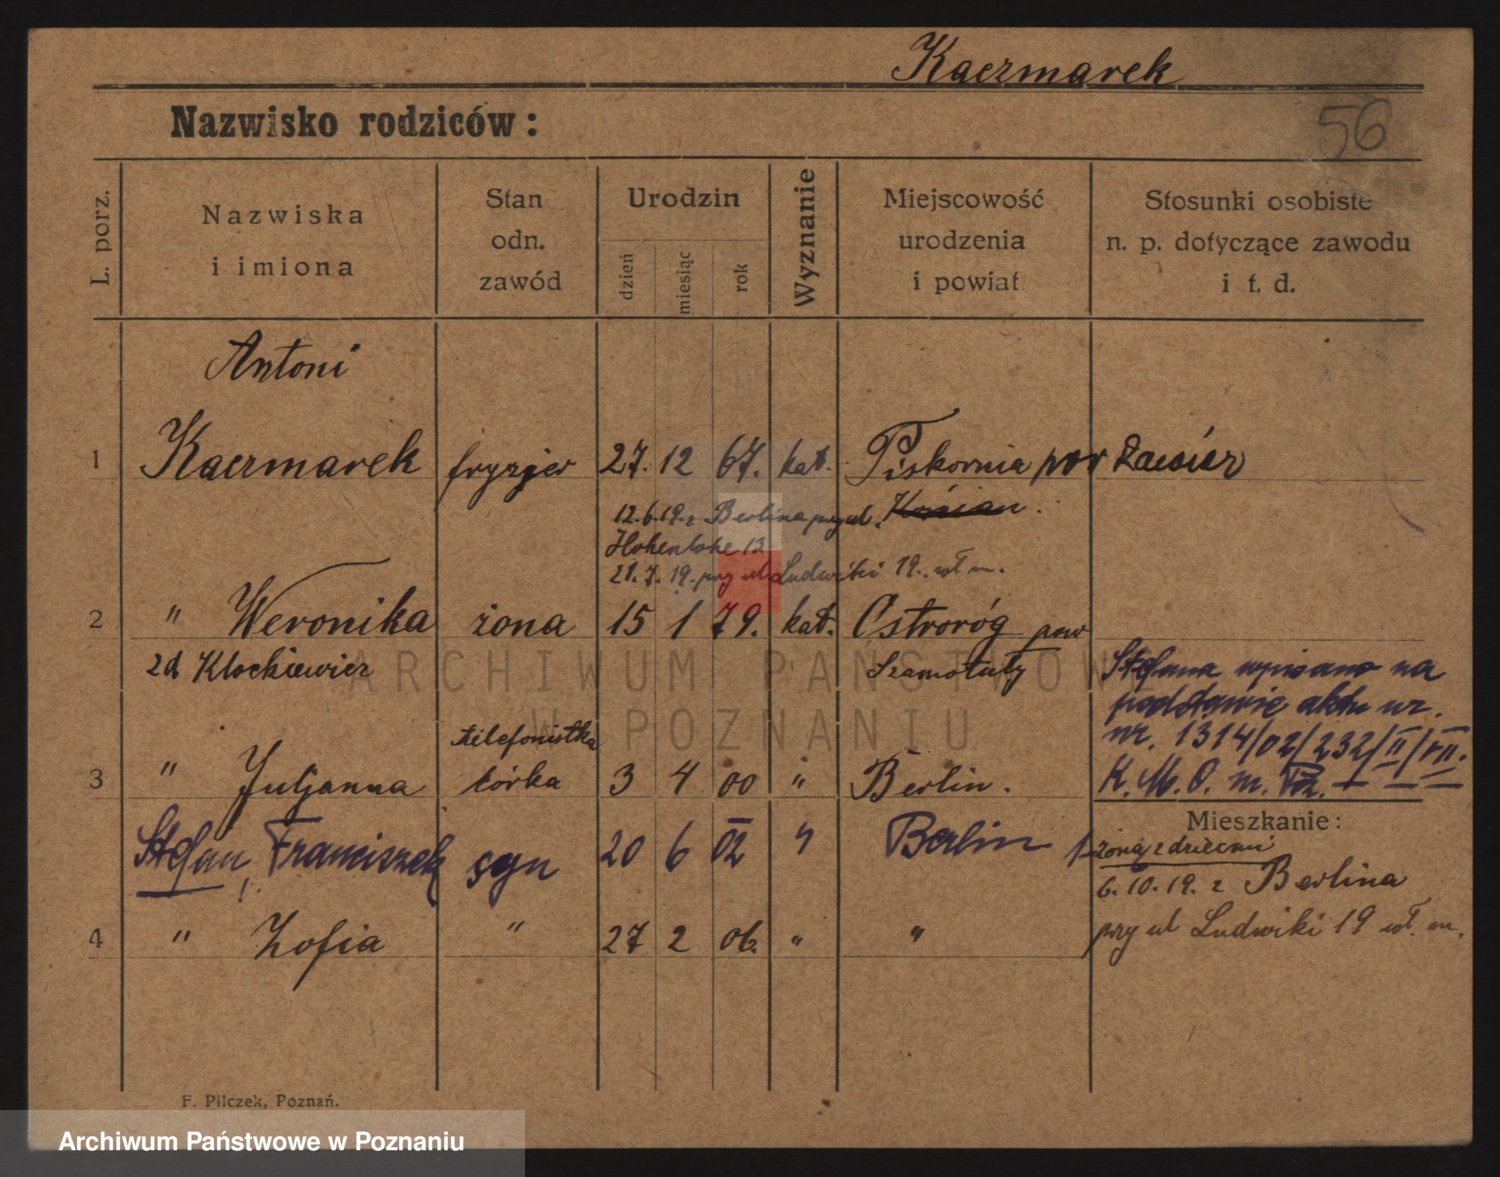 Kaczmarek
56
Nazwisko rodziców:
L. porz.
Nazwiska
i imiona
Stan
odn.
zawód
Urodzin
dzień
miesiąc
rok
Wyznanie
Miejscowość
urodzenia
i powiat
Stosunki osobiste
n. p. dotyczące zawodu
i t. d.
Antoni
1 Kaczmarek fryzjer 27. 12 67. kat. Piskornia pow
12.6.19. z Berlina przy ul. Kościan.
Hohenlohe 13
21.7.19. przy ul Ludwiki 19. wł m.
2 " Weronika żona 15 1 79. kat. Ostroróg pow
zd Klockiewicz Szamotuły
Stefana wpisano na
podstawie aktu ur.
nr. 1314/02/232/II/VII.
K. M. O. m. Poz.
telefonistka
3 " Juljanna córka 3 4 00 " Berlin.
Mieszkanie:
Stefan, Franciszek syn 20 6 02 " Berlin
żoną z dziećmi
6.10.19. z Berlina
przy ul Ludwiki 19 wł. m.
4 " Zofia " 27 2 06. " "
F. Pilczek, Poznań.
ARCHIWUM PAŃSTWOWE
W POZNANIU
Archiwum Państwowe w Poznaniu